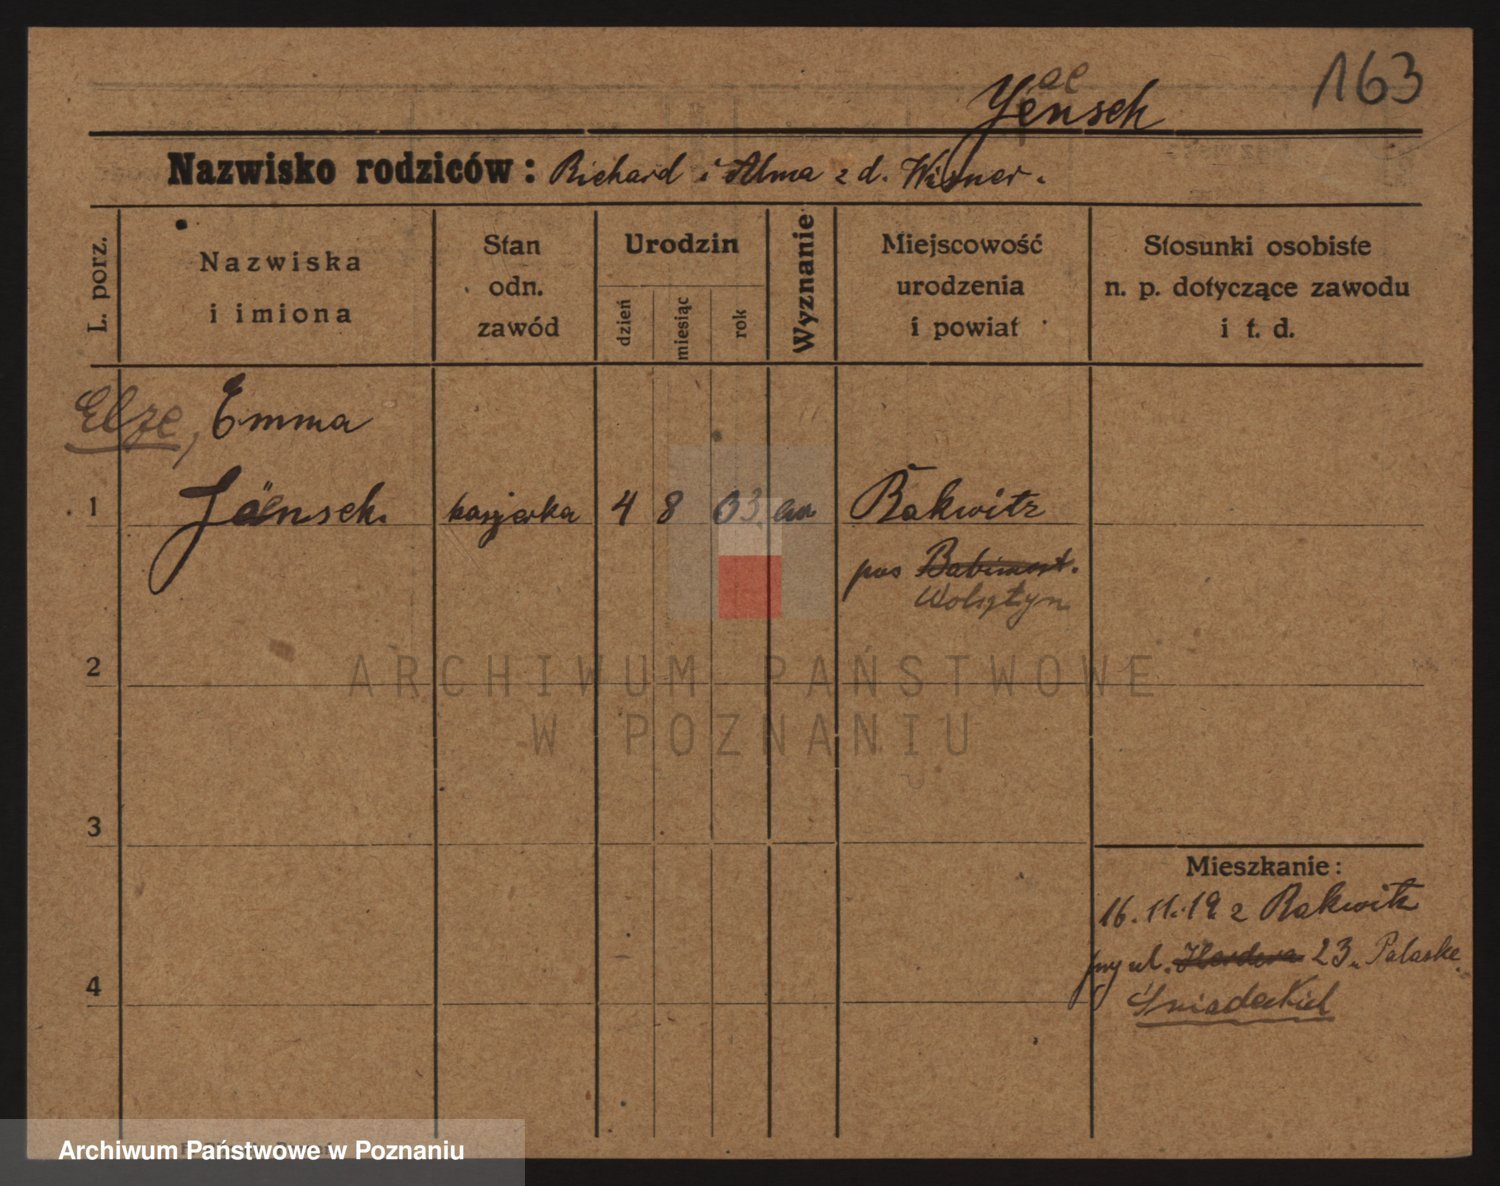 163
ae
Jensch
Nazwisko rodziców: Richard i Alma z d. Wisner.
L. porz.
Nazwiska
i imiona
Stan
odn.
zawód
Urodzin
dzień
miesiąc
rok
Wyznanie
Miejscowość
urodzenia
i powiat
Stosunki osobiste
n. p. dotyczące zawodu
i t. d.
Elze, Emma
1 Jaensch. kasjerka 4 8 03 ew Rakwitz
pow Babimost.
Wolsztyn
2
ARCHIWUM PAŃSTWOWE
W POZNANIU
3
Mieszkanie:
16.11.19 z Rakwitz
przy ul. Herdera 23
4
Śniadeckich
Archiwum Państwowe w Poznaniu